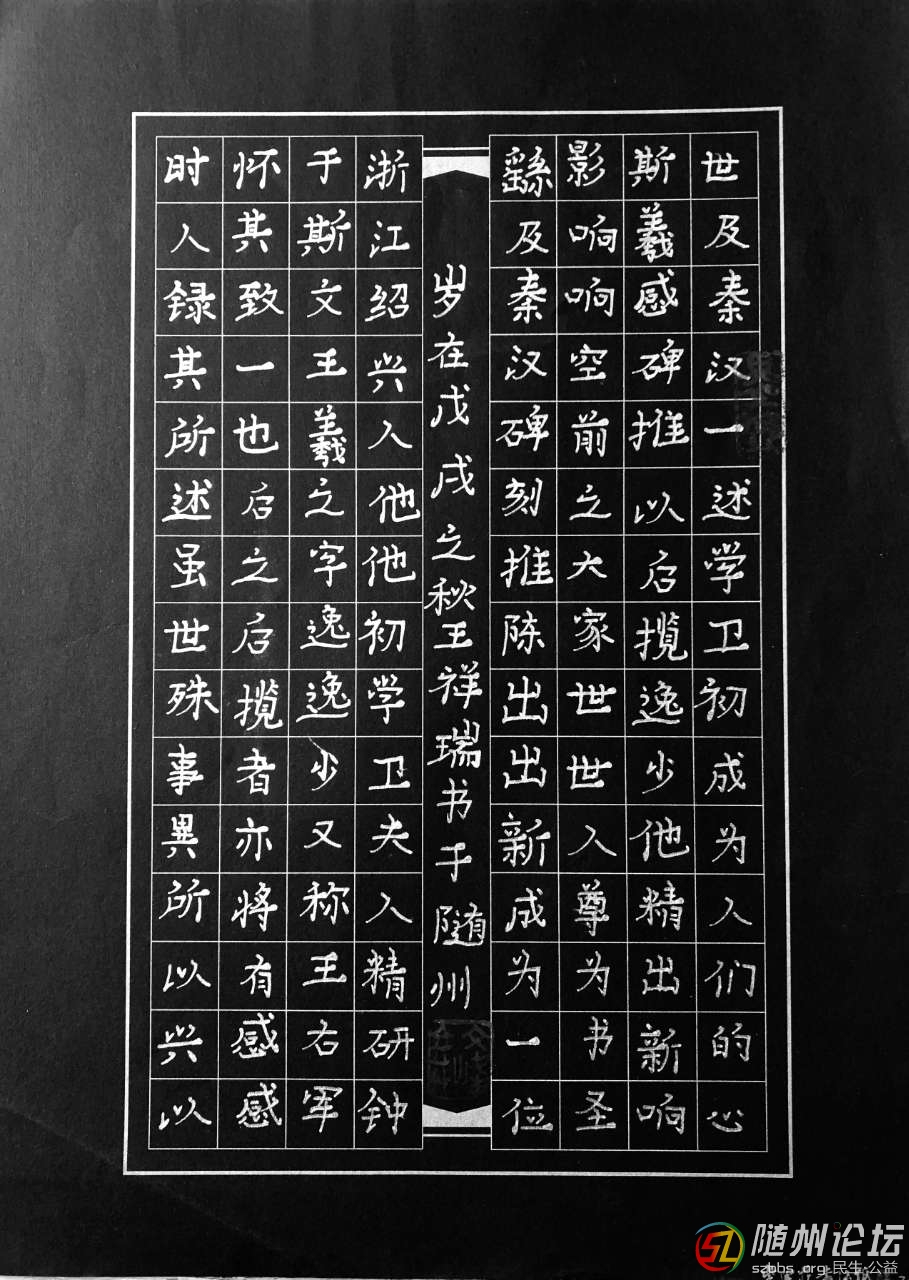 时人录其所述虽世殊事異所以兴以
怀其致一也后之后揽者亦将有感感
于斯文王羲之字逸逸少又称王右军
浙江绍兴人他他初学卫夫人精研钟
繇及秦汉碑刻推陈出出新成为一位
影响响空前之大家世世人尊为书圣
斯羲感碑推以后揽逸少他精出新响
世及秦汉一述学卫初成为人们的心
岁在戊戌之秋王祥瑞书于随州
随州论坛
szbbs.org·民生·公益